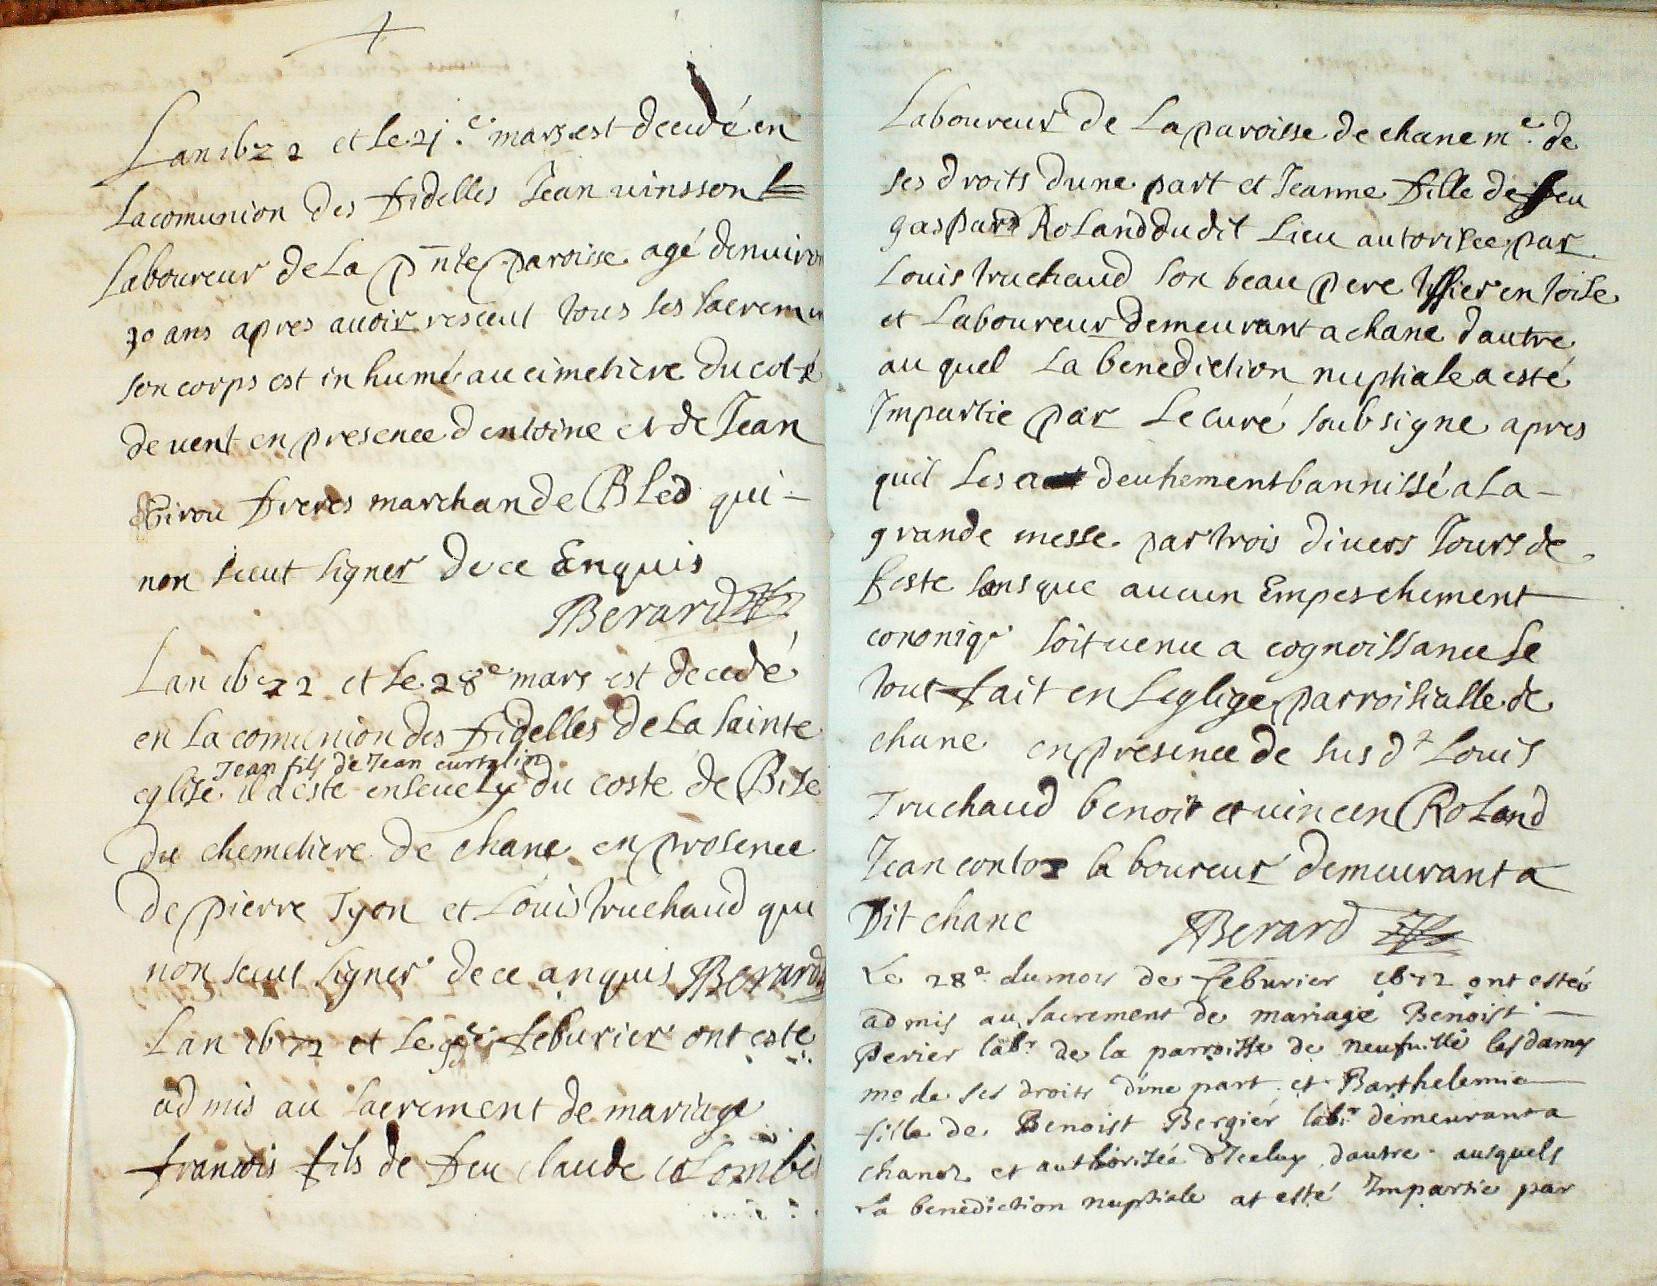 Lan 1672 et le 21.e mars est decedé en
La comunion des fidelles Jean uinsson
Laboureur de La pnte paroisse agé denuiron
70 ans apres auoir resceut tous les sacremen
son corps est in humé au cimetiere du coté
de uent en presence dentoine et de Jean
Girou freres marchan de Bled qui -
non sceut signer de ce Enquis
Berard
Lan 1672 et le 28e mars est decedé
en La comunion des fidelles de La sainte
Jean fils de Jean curtelin
eglise il a este enseuely du coste de Bise
du chemetiere de chane en presence
de pierre Tyon et Louis truchaud qui
non sceut signer de ce anquis Berard
Lan 1672 et le feburier ont este
admis au sacrement de mariage
francois fils de feu claude colombe
Laboureur de La paroisse de chane me. de
ses droits dune part et Jeanne fille de feu
gaspard Roland du dit Lieu autorisee par
Louis truchaud son beau pere tissier en toise
et Laboureur demeurant a chane dautre
au quel La benediction nuptiale a esté
Impartie par Le curé soubsigne apres
quil Les a deuhement bannissé a La -
grande messe par trois diuers Jours de
feste sans que aucun Empeschement
cononiqe soit uenu a cognoissance Le
tout fait en Leglige parroisialle de
chane en presence de sus dt Louis
Truchaud benoit et uincen Roland
Jean contor laboureur demeurant a
Dit chane Berard
Le 28e du mois de feburier 1672 ont estés
admis au sacrement de mariage Benoist -
Perier labr de la parroisse de neufuille les dames
me de ses droits dune part et Barthelemie
fille de Benoist Bergier labr demeurant a
chanes et authorisée dIceluy dautre ausquels
La benediction nuptiale at esté Impartie par